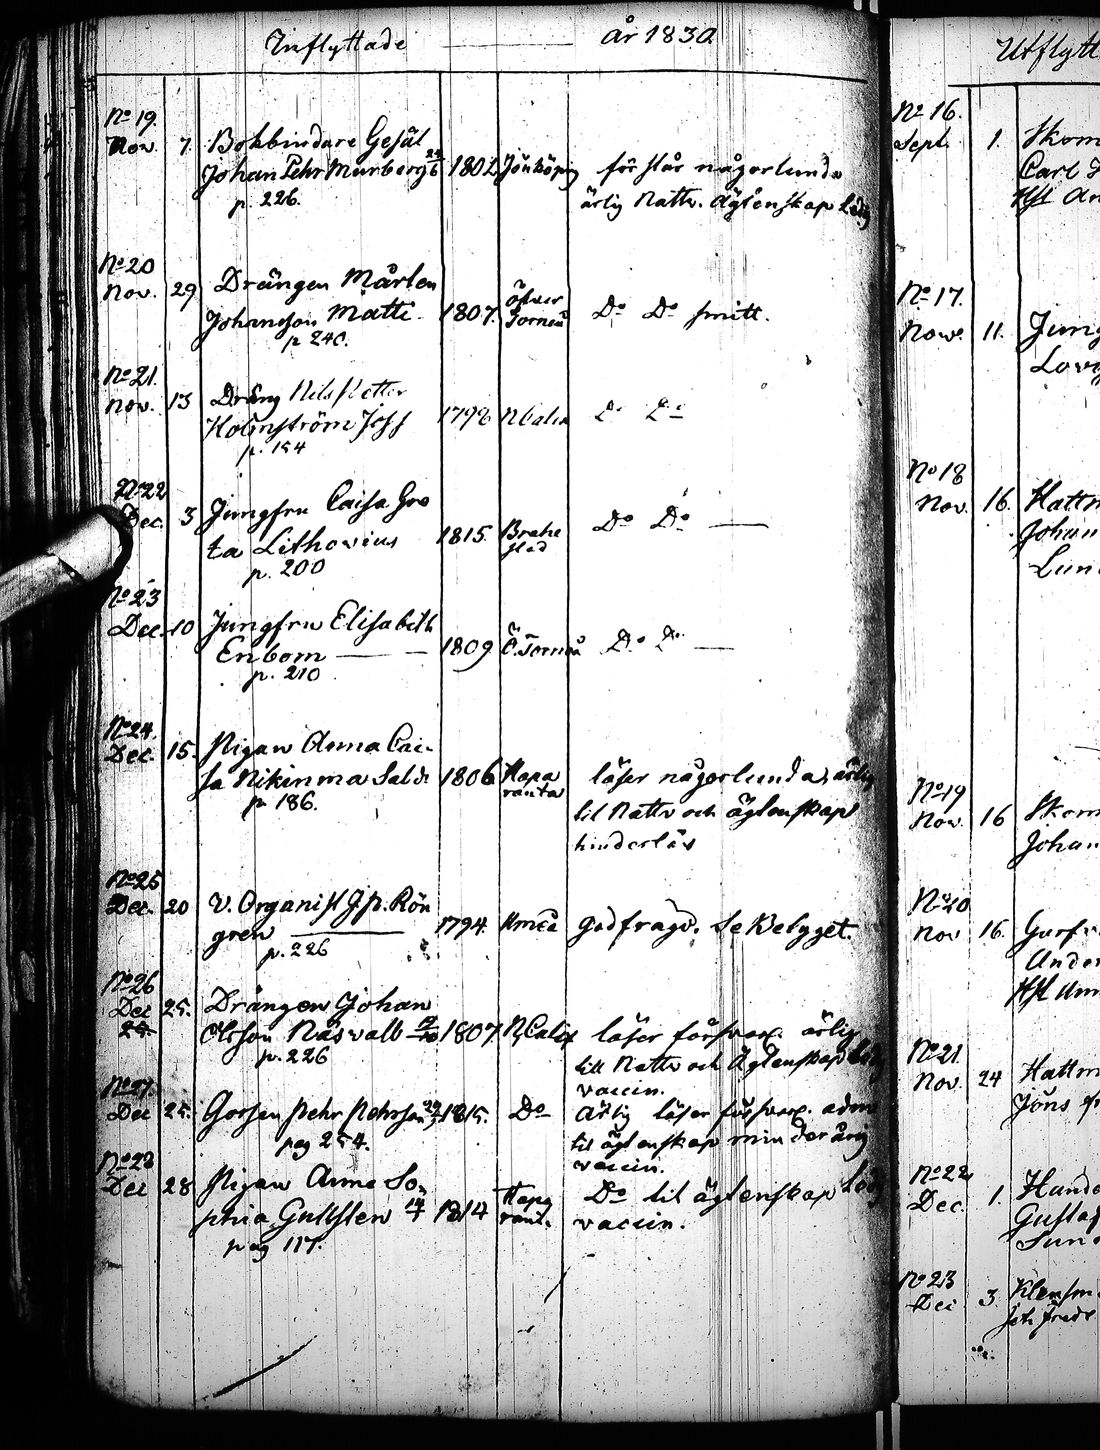 Inflyttade år 1830
No 19.
Nov. 7. Bokbindare Gesäl
Johan Pehr Murberg 1802. Jönköping förstår någorlunda
p. 226. ärlig Nattv. Ägtenskap Ledig
No 20
Nov. 29 Drängen Mårten
Johansson Matti 1807. Öfver Torneå Do Do smitt.
p 240.
No 21.
Nov. 13 Dräng Nils Petter
Holmström 1792 NCalix Do Do
p. 154
No 22
Dec. 3 Jungfru Caisa Gre
ta Lithovius 1815. Brahe stad Do Do
p. 200
No 23
Dec. 10 Jungfru Elisabeth
Enbom 1809 Ö.Torneå Do Do
p. 210
No 24.
Dec. 15. Pigan Anna Cai-
sa Nikinma 1806 Hapa ranta läser någorlunda, ärlig
p. 186. til Nattv och ägtenskap
hinderlös
No 25
Dec. 20 V. Organist J.p. Rön
gren 1794. Umeå godfragd. Se Betyget.
p. 226
No 26
Dec 25. Drängen Johan
Olsson Näsvall 1807. N Calix läser försvarl. ärlig
p. 226 till Nattv och Ägtenskap
vaccin.
No 27.
Dec 25. Gossen Pehr Pehrsson 1815. Do Ärlig läser försvarl. adm
pag 254. til ägtenskap minderårig
vaccin.
No 28
Dec 28 Pigan Anna So-
phia Gullsten 1814 Hapa rant. Do til ägtenskap ledig
pag 117. vaccin.
Utflytt
No 16.
Sept. 1. Skom
Carl
No 17.
Nov. 11. Jung
Lov
No 18
Nov. 16. Hattm
Johan
Lun
No 19
Nov. 16 Skom
Johan
No 20
Nov 16. Garfv
Ander
No 21
Nov. 24 Hattm
Jöns
No 22
Dec. 1. Hand
Gustaf
Sun
No 23
Dec 3. Klensm
Joh Fredr